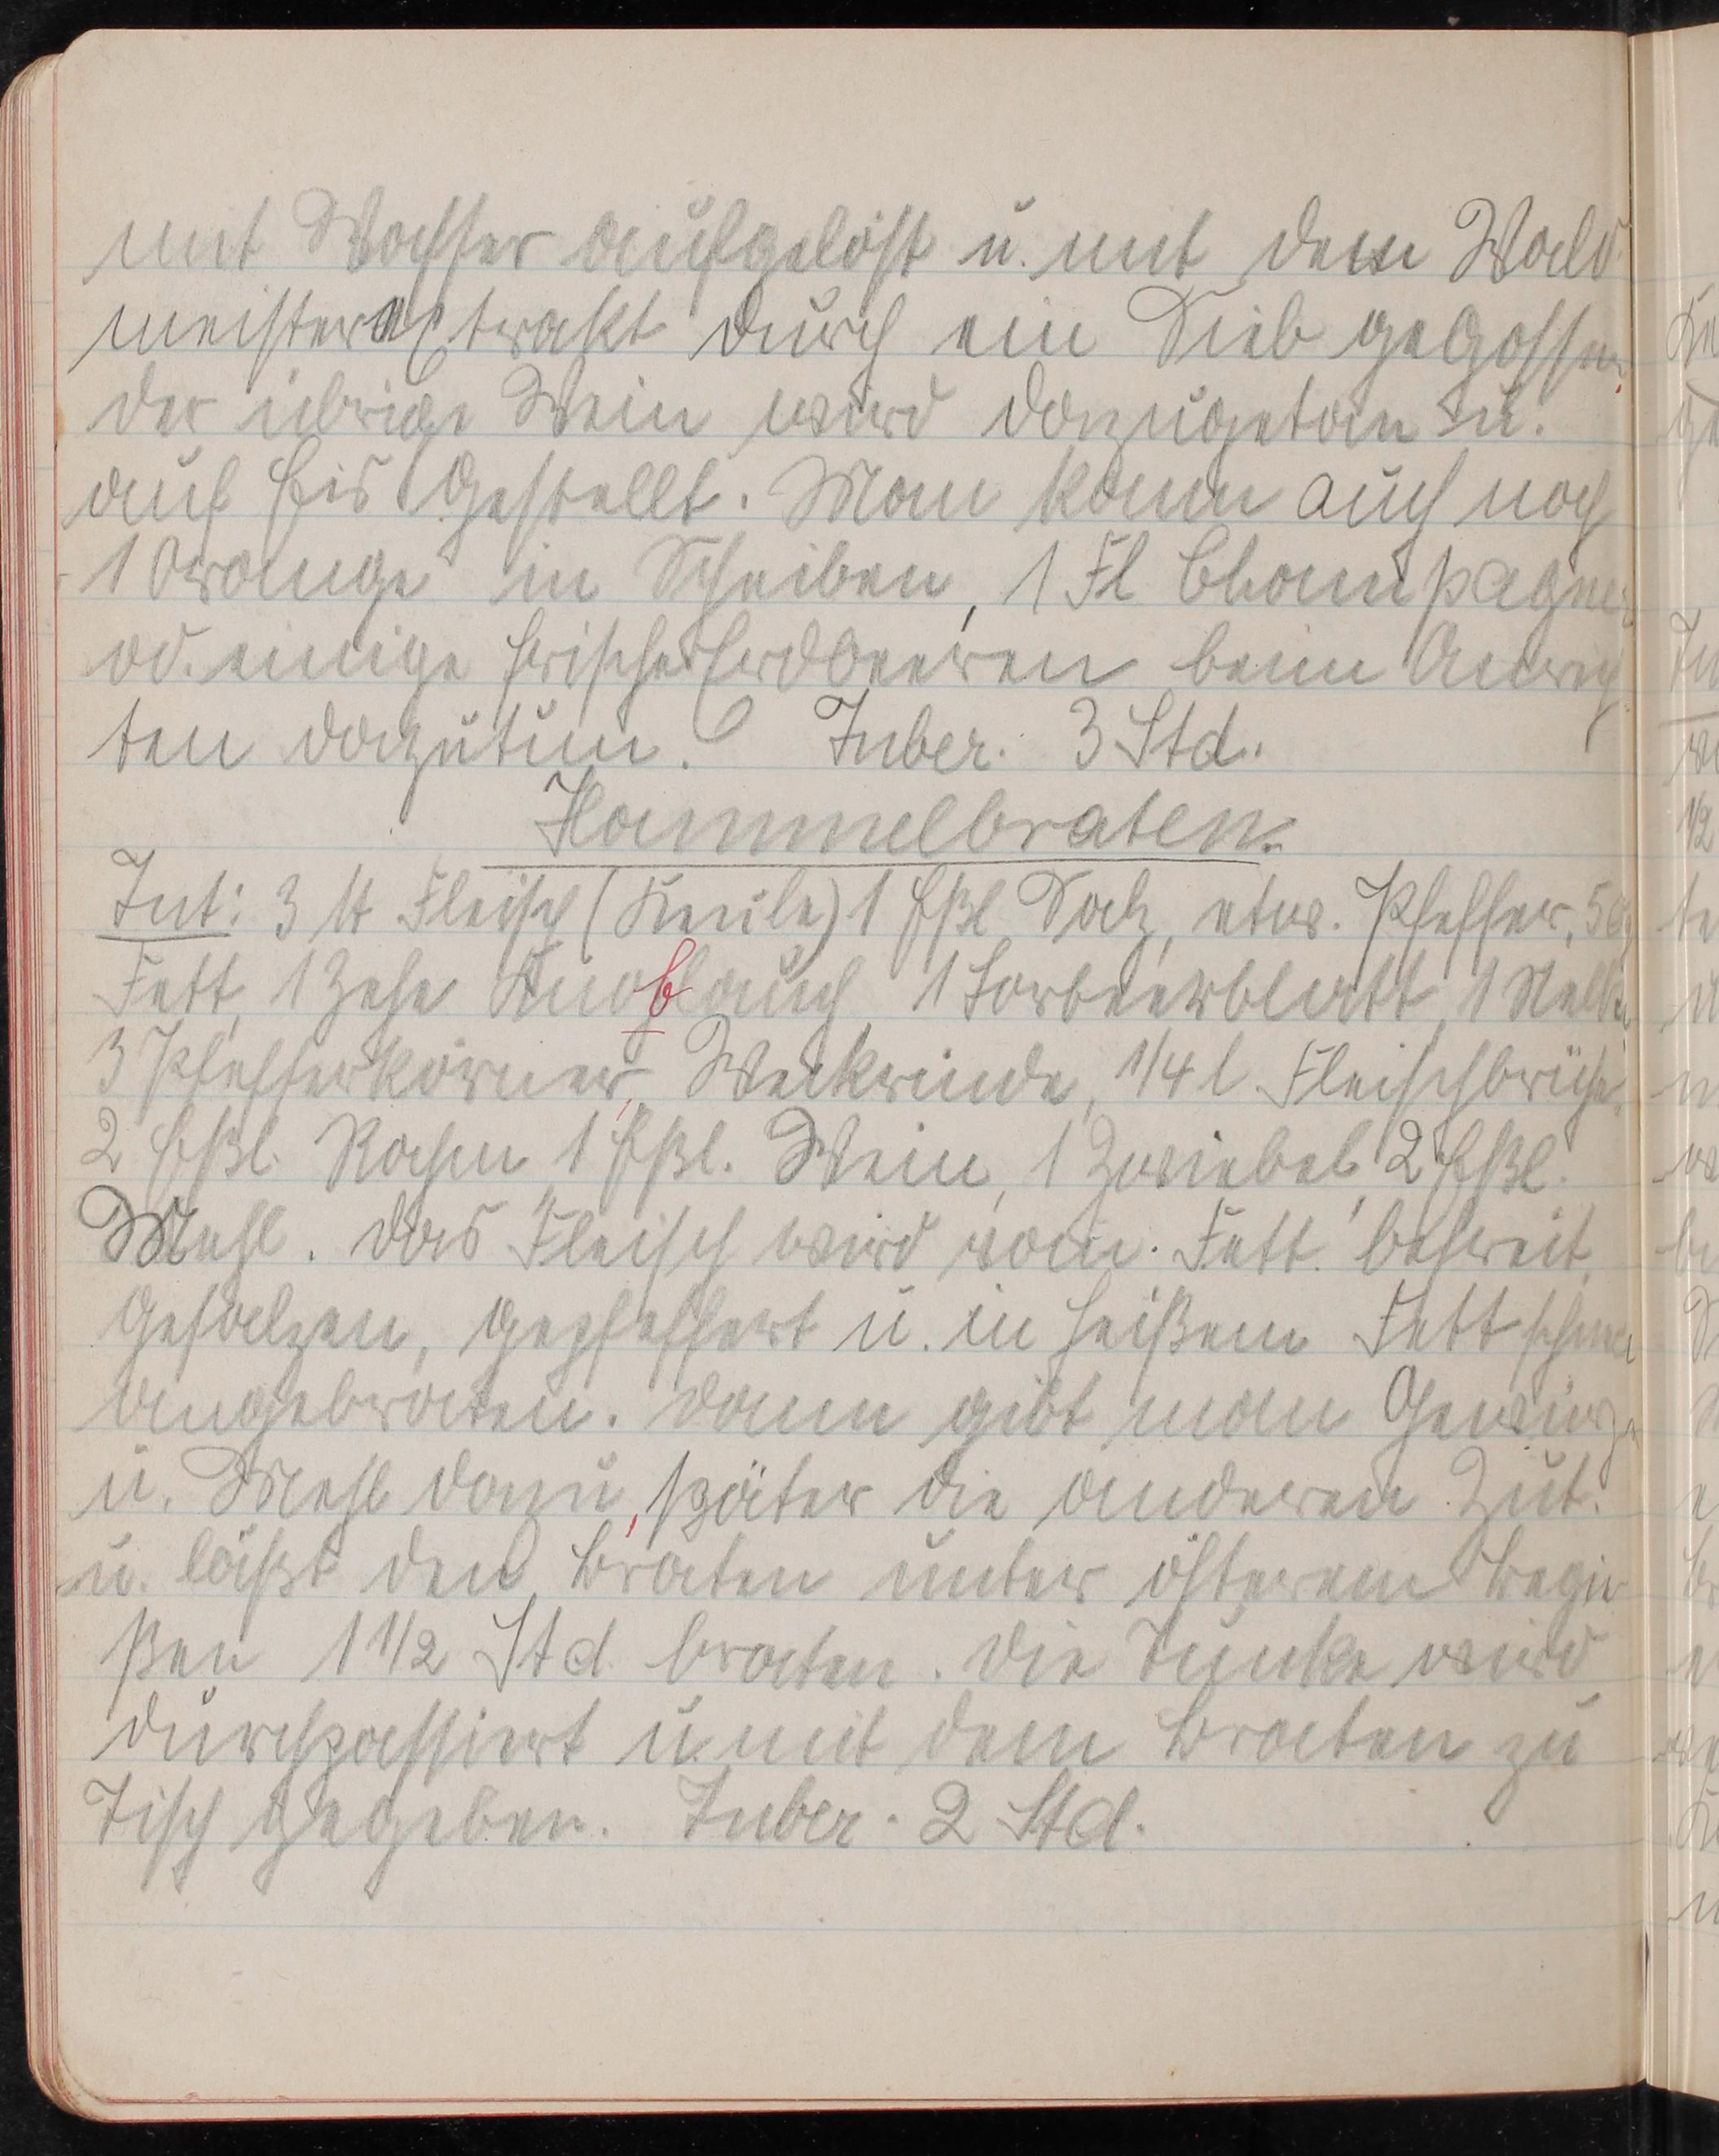 mit Wasser aufgelöst u. mit dem Wald
meisterextrakt durch ein Sieb gegossen,
der übrige Wein wird dazugetan u.
auf Eis gestellt. Man kann auch noch
1 Orange in Scheiben, 1 Fl Champagner
od. einige frische Erdbeeren beim Anrich
ten dazutun. Zuber. 3 Std.
Hammelbraten.
Zut: 3 ℔ Fleisch (Keule) 1 Eßl Salz, etw. Pfeffer, 50g
Fett, 1 Zehe Knoblauch 1 Lorbeerblatt, 1 Nelke,
3 Pfefferkörner, Weckrinde, 1/4 l. Fleischbrühe,
2 Eßl. Rahm, 1 Eßl. Wein, 1 Zwiebel, 2 Eßl.
Mehl. Das Fleisch wird vom Fett befreit,
gesalzen, gepfeffert u. in heißem Fett schnell
angebraten. Dann gibt man Gewürze
u. Mehl dazu, später die anderen Zut.
u. läßt den Braten unter öfterem Begie
ßen 1 1/2 Std braten. Die Tunke wird
durchpassiert u. mit dem Braten zu
Tisch gegeben. Zuber. 2 Std.